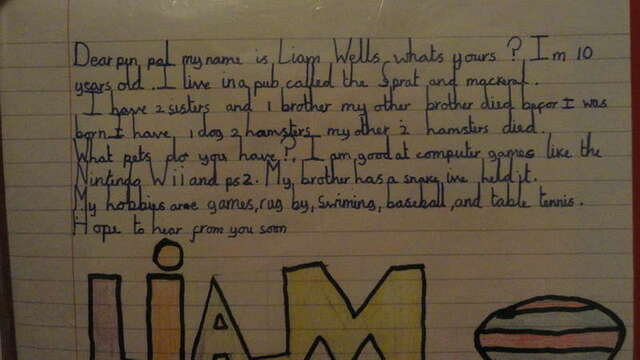 Dear pen pal my name is Liam Wells, whats yours? Im 10
years old. I live in a pub, called the Sprat and mackeral.
I have 2 sisters and 1 brother my other brother died befor I was
born. I have 1 dog 2 hamsters my other 2 hamsters died.
What pets do you have?, I am good at computer games like the
Nintindo Wii and ps2. My brother has a snake ive held it.
My hobbies are games, rug by, swiming, baseball, and table tennis.
Hope to hear from you soon
LiAM